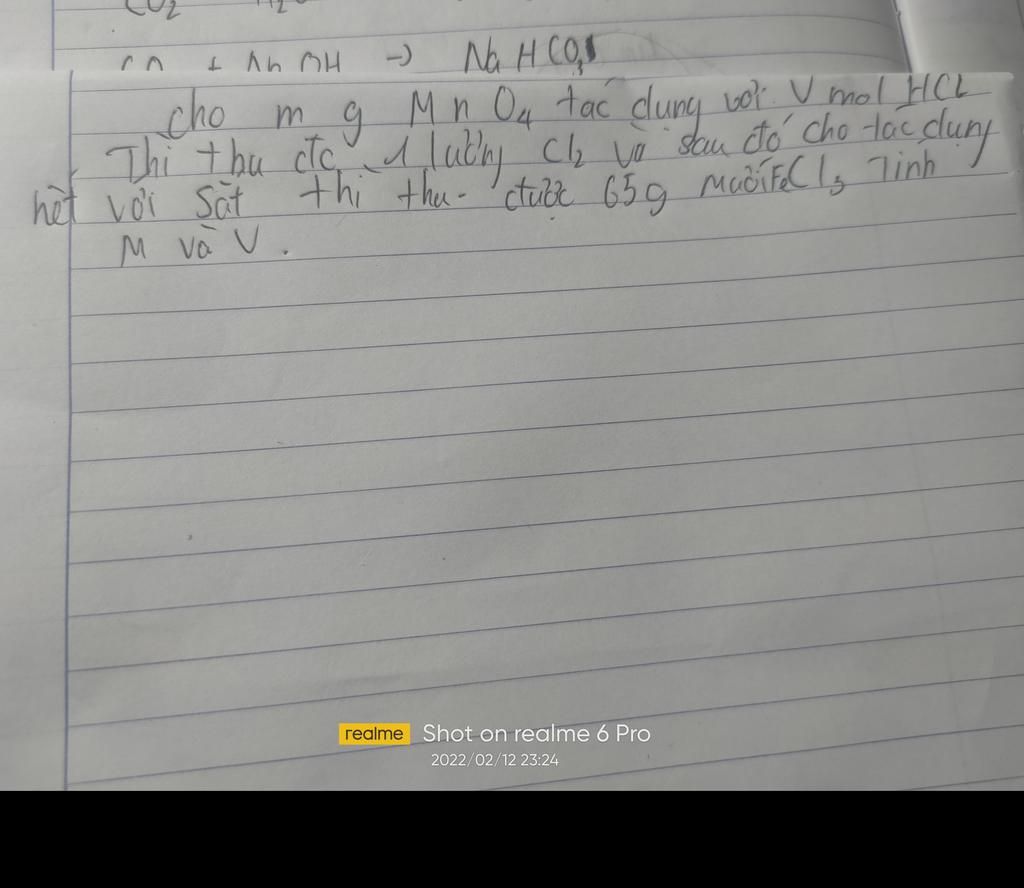 CO2
+ NaOH → NaHCO3
Cho m g MnO4 tác dụng với V mol HCl
Thì thu đc 1 lường Cl2 và sau đó cho tác dụng
hết với Sắt thì thu đước 65g muối FeCl3 Tính
M và V.
realme Shot on realme 6 Pro
2022/02/12 23:24